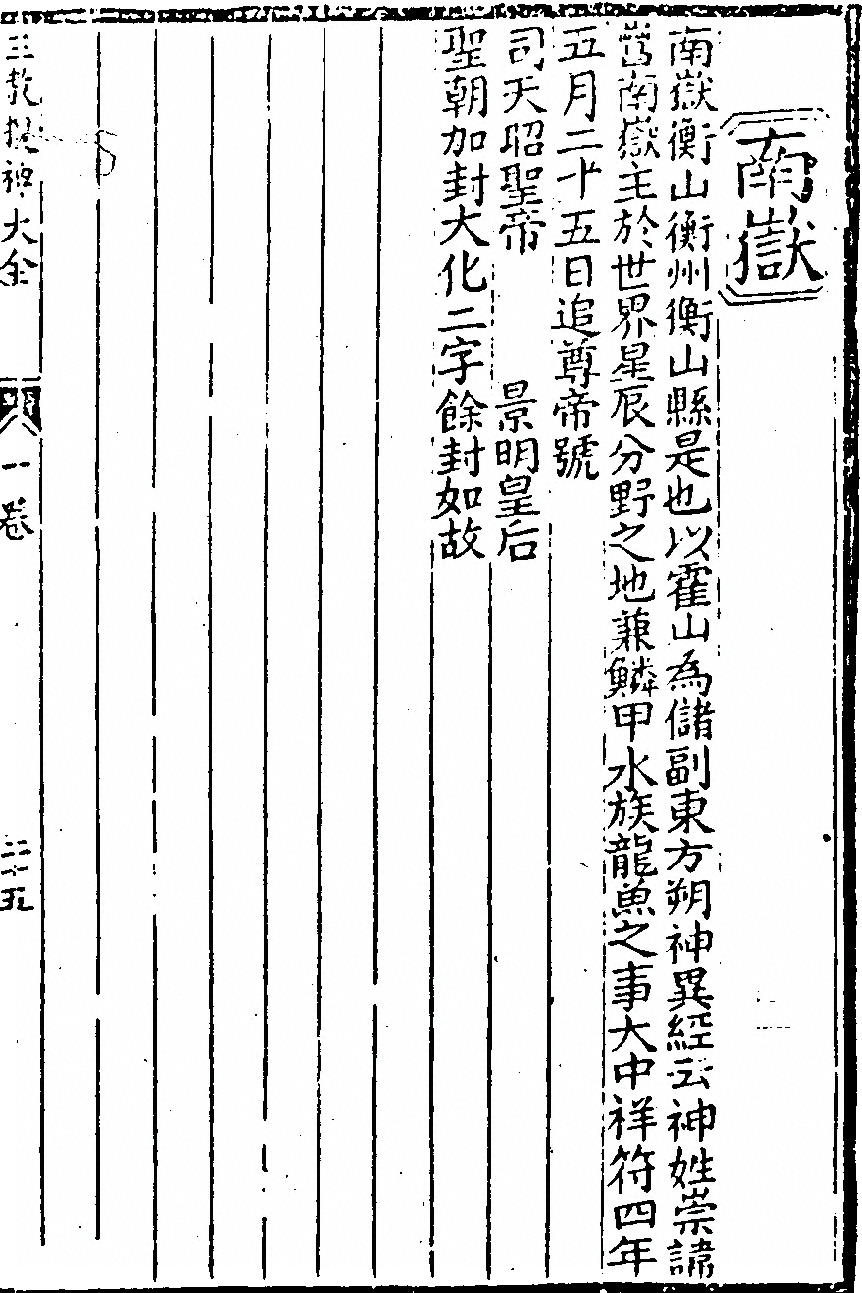 南嶽
南嶽衡山衡州衡山縣是也以霍山為儲副東方朔神異經云神姓崇諱
𡶶南嶽主於世界星辰分野之地兼鱗甲水族龍魚之事大中祥符四年
五月二十五日追尊帝號
司天昭聖帝　景明皇后
聖朝加封大化二字餘封如故
三教搜神大全　一卷　二十五